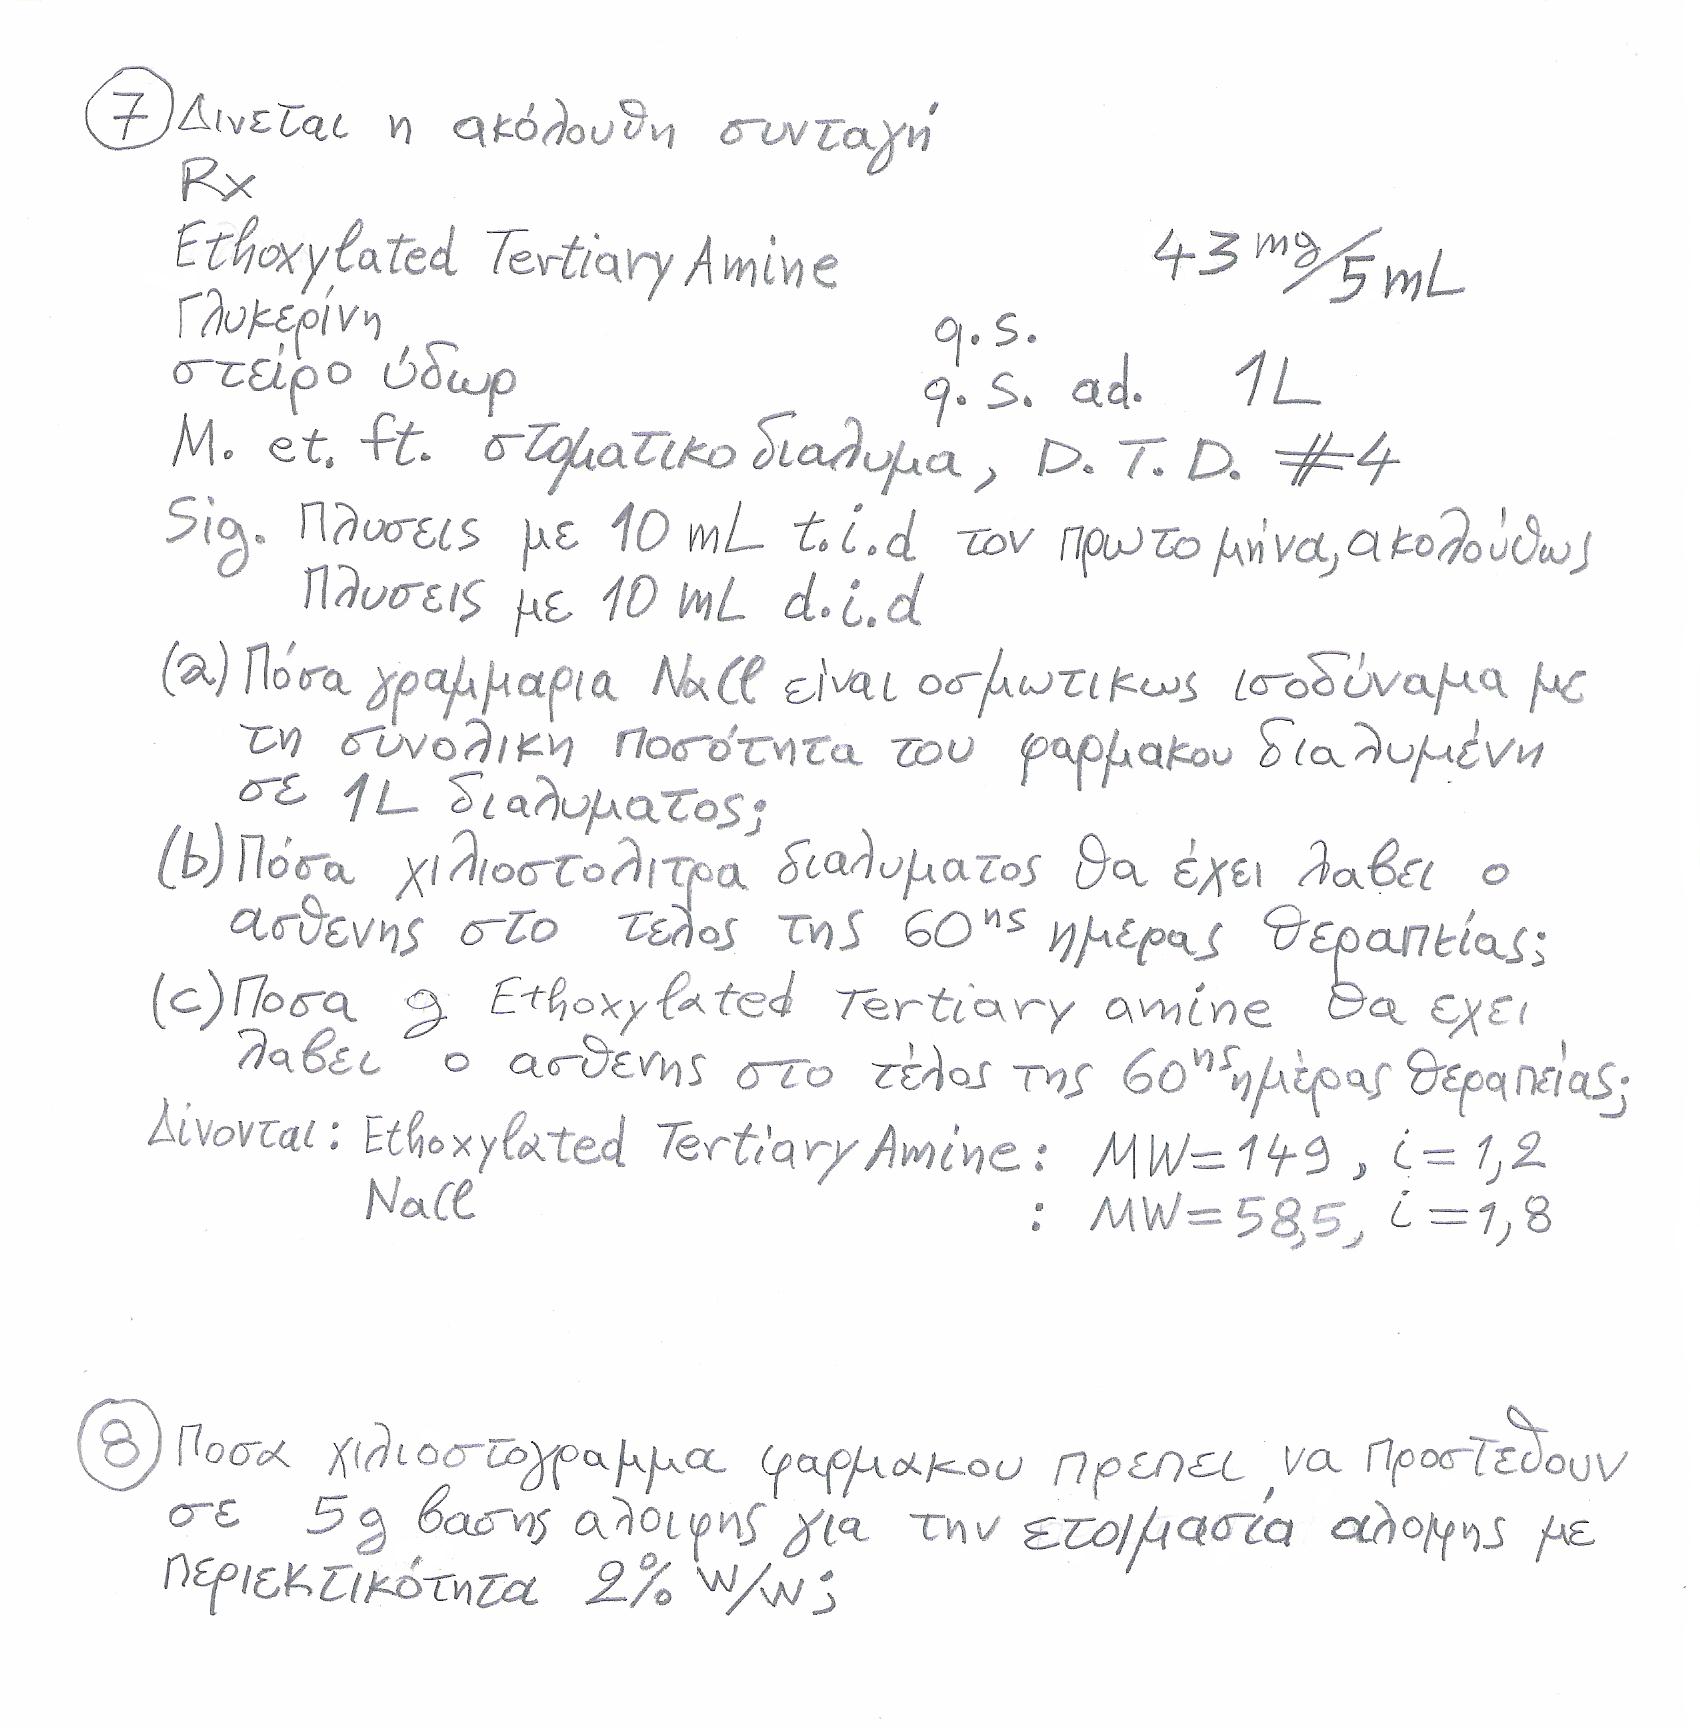 7 Δινεται η ακόλουθη συνταγή
Rx
Ethoxylated Tertiary Amine 43 mg/5 mL
Γλυκερίνη q.s.
στείρο ύδωρ q.s. ad. 1L
M. et. ft. στοματικο διαλυμα, D.T.D. #4
Sig. Πλυσεις με 10 mL t.i.d τον πρωτο μήνα, ακολούθως
Πλυσεις με 10 mL d.i.d
(a) Πόσα γραμμαρια NaCl είναι οσμωτικως ισοδύναμα με
τη συνολικη ποσότητα του φαρμακου διαλυμένη
σε 1L διαλυματος;
(b) Πόσα χιλιοστολιτρα διαλυματος θα έχει λαβει ο
ασθενης στο τελος της 60ης ημέρας θεραπείας;
(c) Ποσα g Ethoxylated Tertiary amine θα εχει
λαβει ο ασθενης στο τέλος της 60ης ημέρας θεραπείας;
Δίνονται: Ethoxylated Tertiary Amine: MW=149, i=1,2
NaCl : MW=58,5, i=1,8
8 Ποσα χιλιοστογραμμα φαρμακου πρεπει να προστεθουν
σε 5g βασης αλοιφης για την ετοιμασία αλοιφης με
περιεκτικότητα 2% w/w;